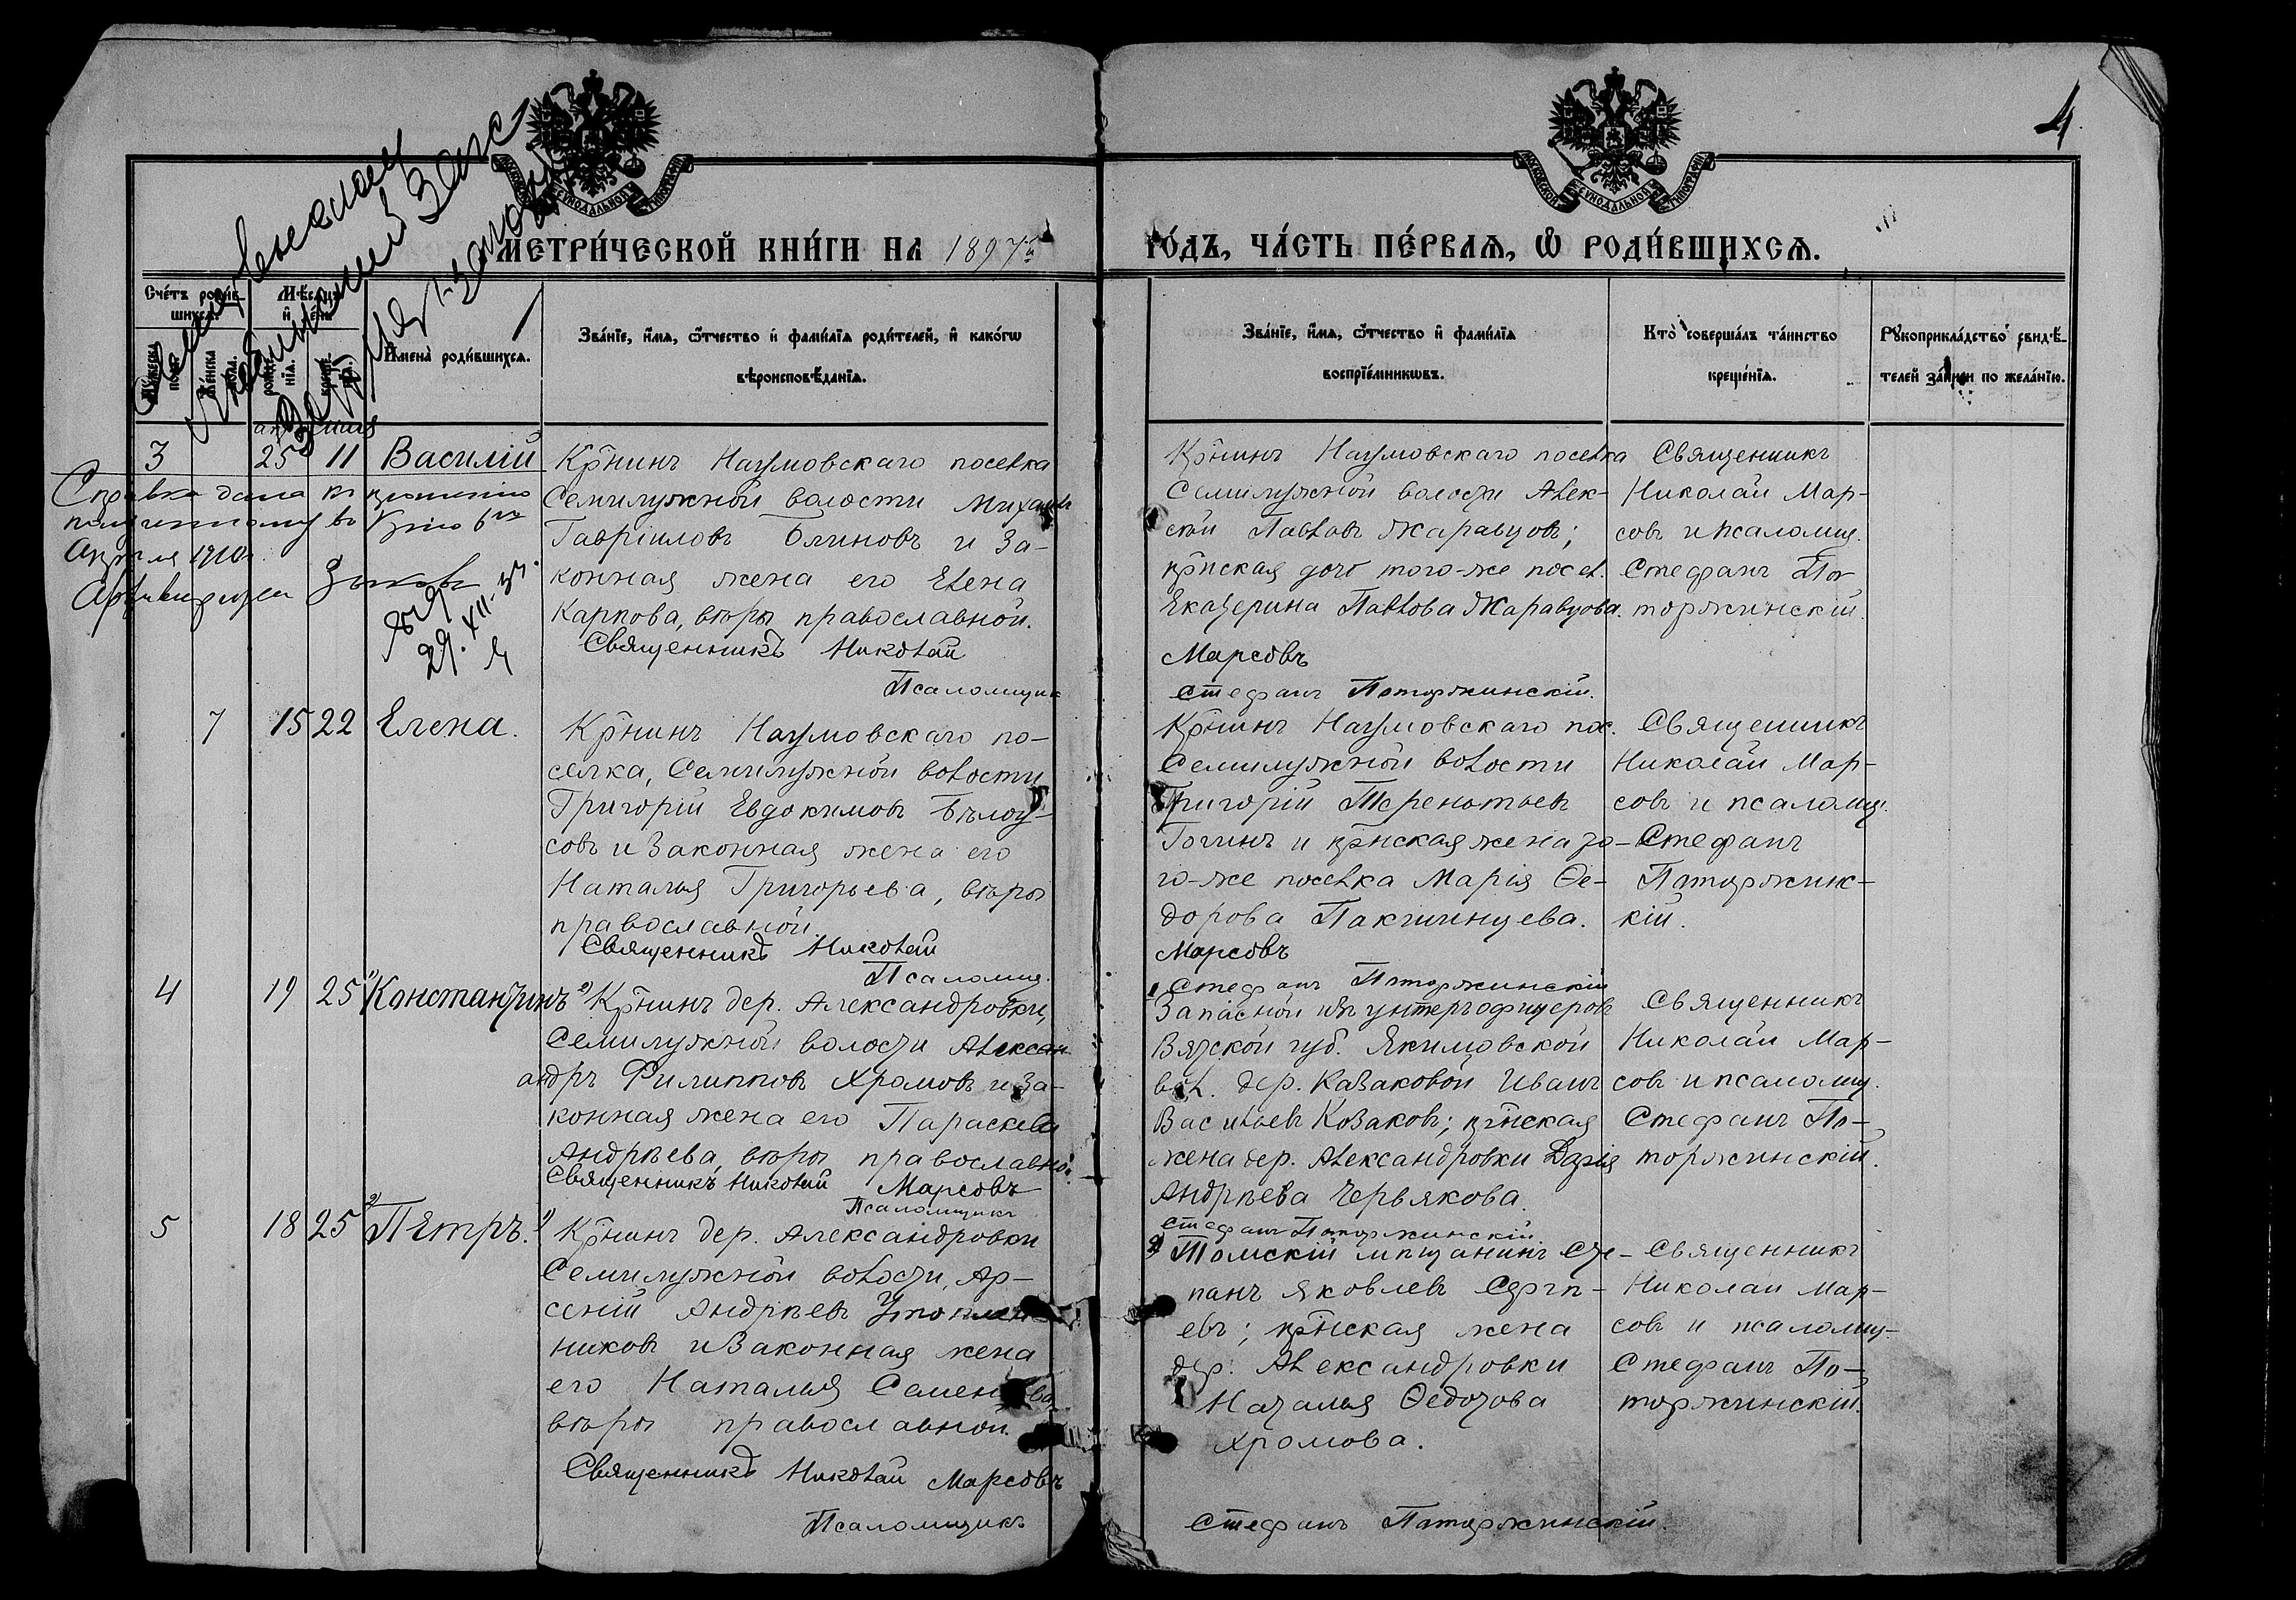 4
МЕТРИ́ЧЕСКОЙ КНИ́ГИ НА 1897й
ГО́ДЪ, ЧА́СТЬ ПЕ́РВАѦ, Ѿ РОДИ́ВШИХСѦ.
Сче́тъ роди́в-
шихсѧ.
Мѣ́сѧцъ
и҆ де́нь
Же́нска
по́ла.
рожде́-
нїѧ.
И҆мена̀ роди́вшихсѧ.
Зва́нїе, и҆́мѧ, ѻ҆́тчество и҆ фами́лїѧ роди́телей, и҆ како́гѡ
вѣроисповѣ́данїѧ.
Зва́нїе, и҆́мѧ, ѻ҆́тчество и҆ фами́лїѧ
воспрїе́мникѡвъ.
Кто̀ соверша́лъ та́инство
креще́нїѧ.
Рꙋкоприкла́дство свидѣ́-
телей за́писи по жела́нїю.
3 25 11 Василій
Крнинъ Наумовскаго поселка
Семилужной волости Михаилъ
Гавріиловъ Блиновъ и за-
конная жена его Елена
Карпова, вѣры православной.
Священникъ Николай
Псаломщик
Справка дана по прошению
полученному въ 6го
Апреля 1910г.
29. XII-
Крнинъ Наумовскаго поселка
Семилужной волости Алек-
сѣй Павловъ Жаравцовъ;
крнская дочь того-же посел.
Екатерина Павлова Жаравцова.
Марсовъ
Стефанъ Паторжинскій.
Священникъ
Николай Мар-
совъ и псаломщ.
Стефанъ Па-
торжинскій.
7 15 22 Елена.
Крнинъ Наумовскаго по-
селка, Семилужной волости
Григорій Евдокимовъ Бѣлоу-
совъ и законная жена его
Наталья Григорьева, вѣры
православной.
Священникъ Николай
Псаломщ.
Крнинъ Наумовскаго пос.
Семилужной волости
Григорій Терентьевъ
Гогинъ и крнская жена то-
го-же поселка Марія Ѳе-
дорова
Марсовъ
Стефанъ Паторжинскій
Священникъ
Николай Мар-
совъ и псаломщ.
Стефанъ
Паторжинс-
кій.
4 19 25 1) Константинъ
2) Крнинъ дер. Александровки,
Семилужной волости Алексан
андръ Филипповъ Хромовъ и за-
конная жена его Параскева
Андрѣева, вѣры православной.
Священникъ Николай Марсовъ
Псаломщикъ
Запасной изъ унтеръ-офицеровъ
Вятской губ. Якимовской
вол. дер. Казаковой Иванъ
Васильевъ Козаковъ; крнская
жена дер. Александровки Дарія
Андрѣева Червякова.
Стефанъ Паторжинскій
Священникъ
Николай Мар-
совъ и псаломщ.
Стефанъ Па-
торжинскій.
5 18 25 2) Петръ.
1) Крнинъ дер. Александровки
Семилужной волости, Ар-
сеній Андрѣевъ Утоплен
никовъ и законная жена
его Наталья Семенова
вѣры православной.
Священникъ Николай Марсовъ
Псаломщикъ
2) Томскій мѣщанинъ Сте-
панъ Яковлевъ Сергѣ-
евъ; крнская жена
дер. Александровки
Наталья Ѳедотова
Хромова.
Стефанъ Паторжинскій.
Священникъ
Николай Мар-
совъ и псаломщ-
Стефанъ Па-
торжинскій.